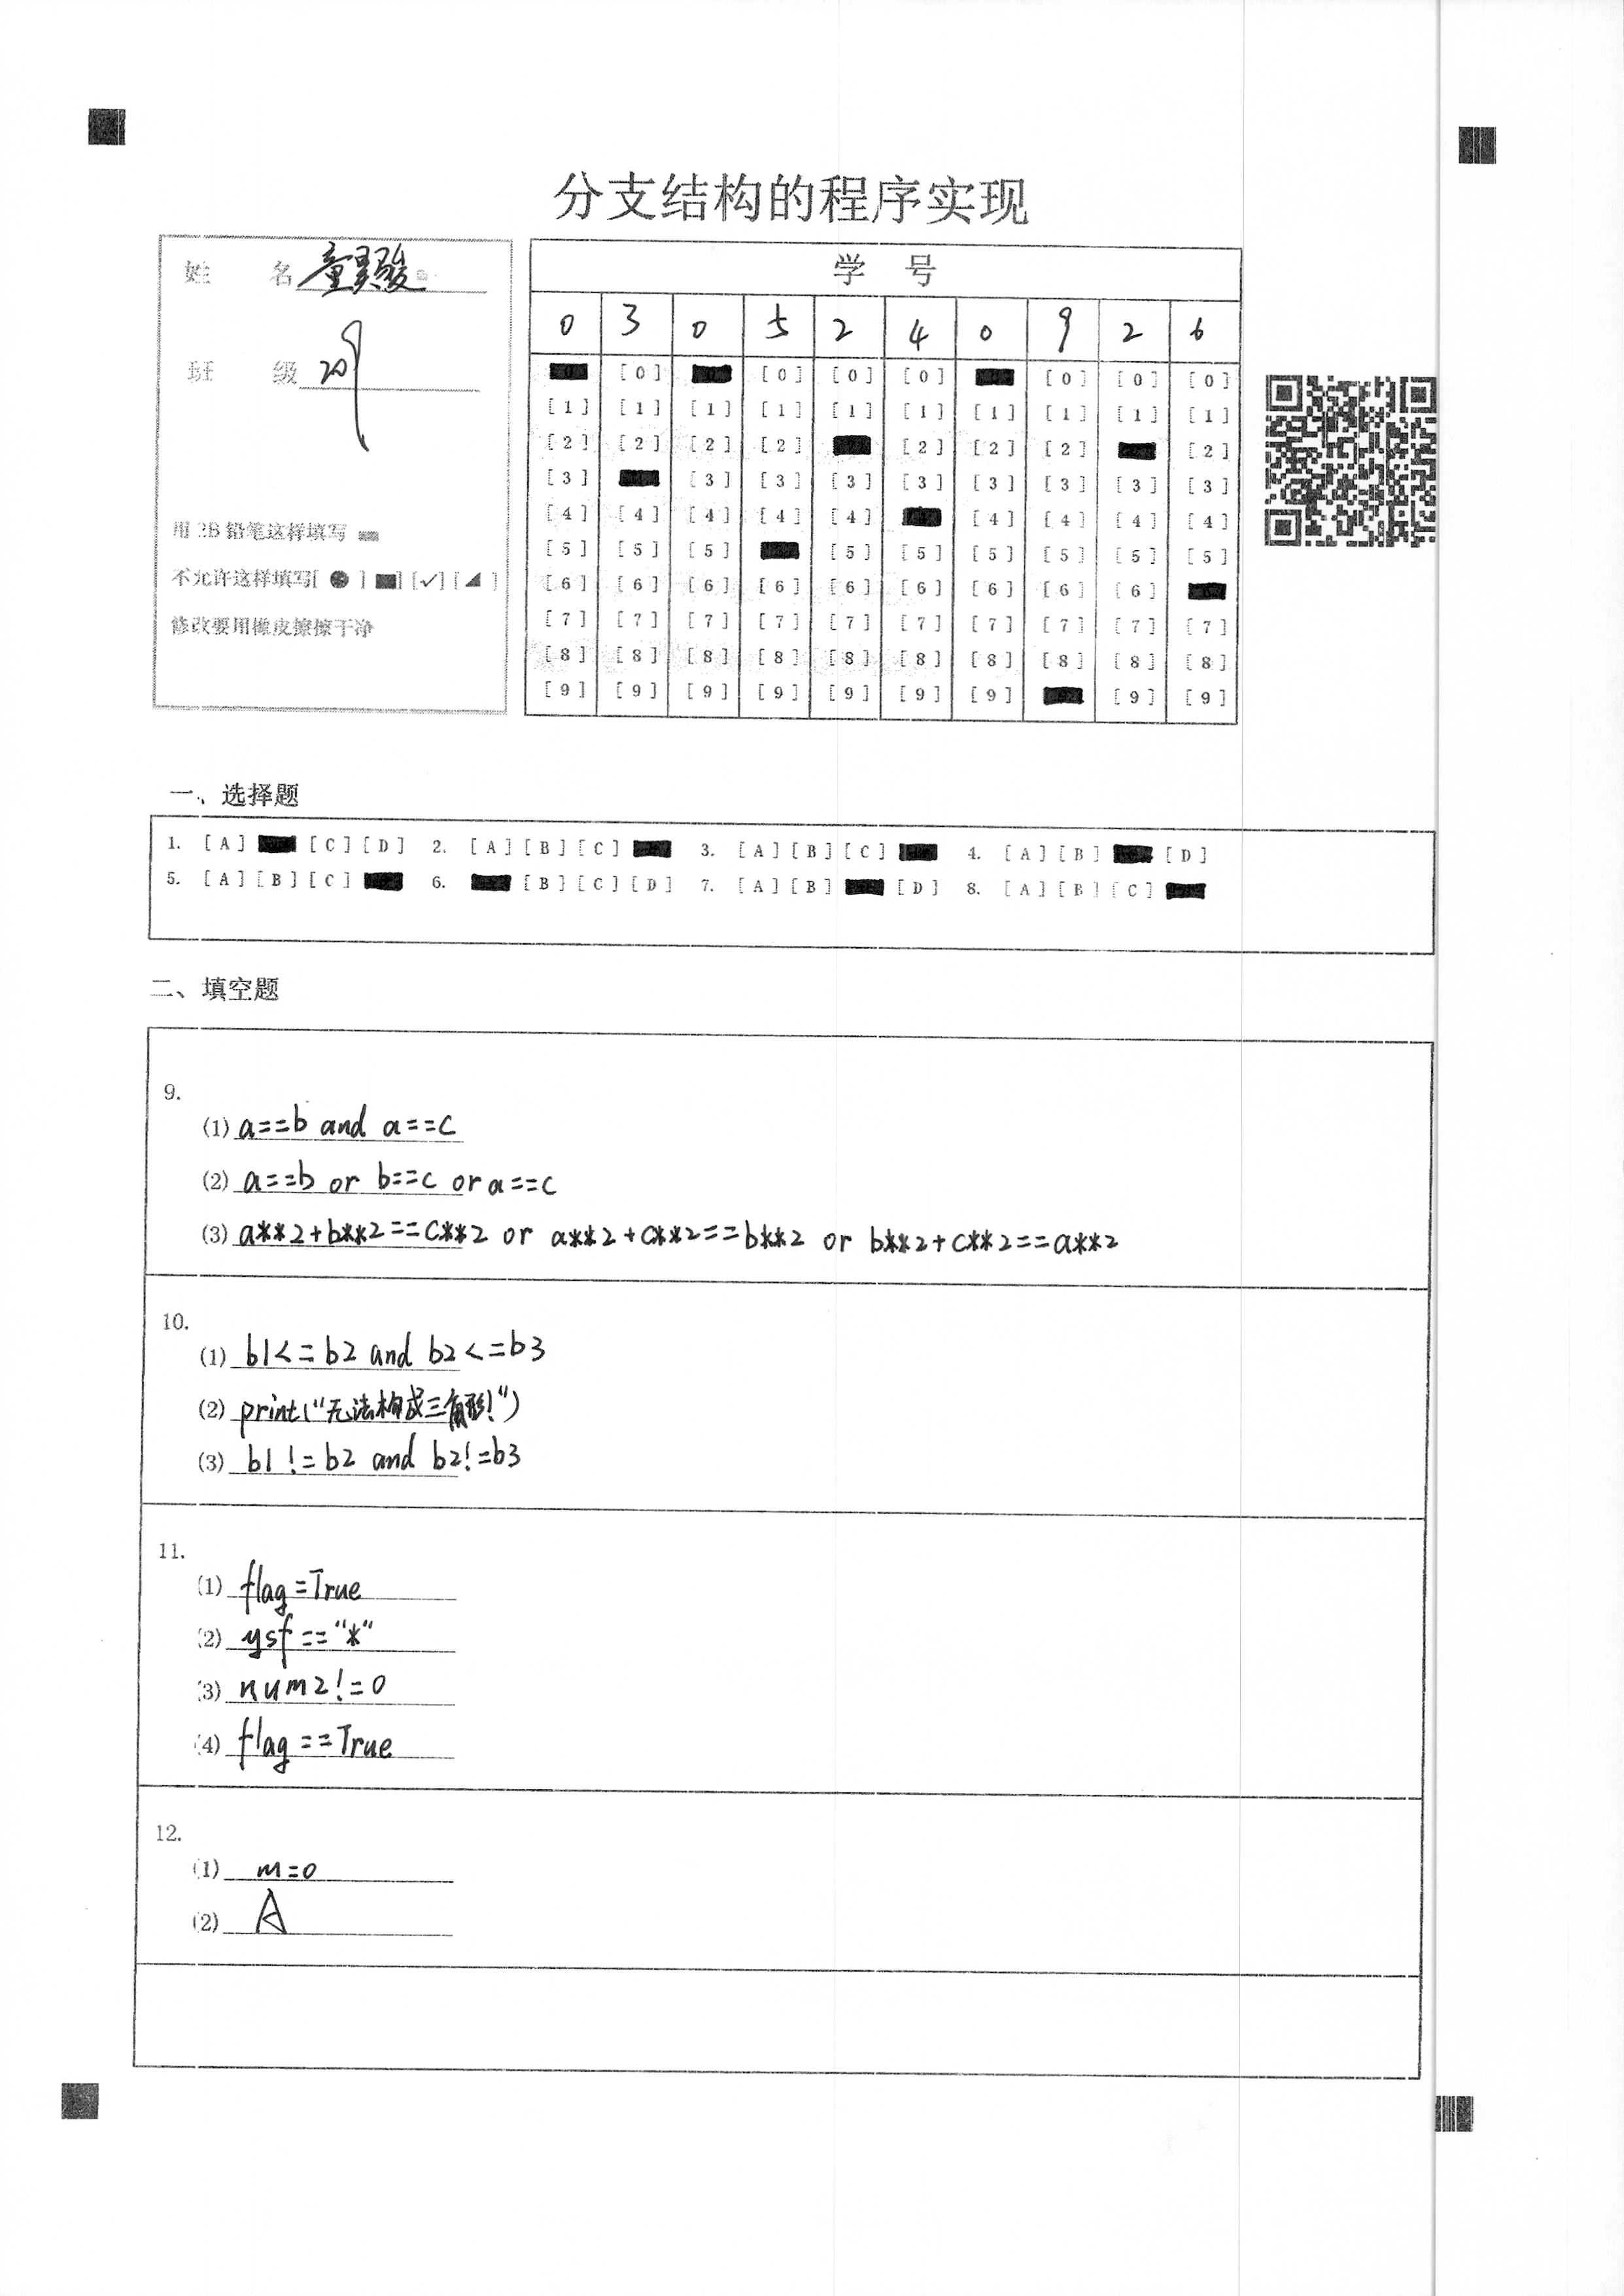 分支结构的程序实现
姓 名 童昊骏
班 级 209
用 2B 铅笔这样填写
不允许这样填写[ ● ] [■] [✓] [◢ ]
修改要用橡皮擦擦干净
学 号
0 3 0 5 2 4 0 9 2 6
[0] [0] [0] [0] [0] [0] [0]
[1] [1] [1] [1] [1] [1] [1] [1] [1] [1]
[2] [2] [2] [2] [2] [2] [2] [2]
[3] [3] [3] [3] [3] [3] [3] [3] [3]
[4] [4] [4] [4] [4] [4] [4] [4] [4]
[5] [5] [5] [5] [5] [5] [5] [5] [5]
[6] [6] [6] [6] [6] [6] [6] [6] [6]
[7] [7] [7] [7] [7] [7] [7] [7] [7] [7]
[8] [8] [8] [8] [8] [8] [8] [8] [8] [8]
[9] [9] [9] [9] [9] [9] [9] [9] [9]
一、选择题
1. [A] [C] [D] 2. [A] [B] [C] 3. [A] [B] [C] 4. [A] [B] [D]
5. [A] [B] [C] 6. [B] [C] [D] 7. [A] [B] [D] 8. [A] [B] [C]
二、填空题
9.
(1) a==b and a==c
(2) a==b or b==c or a==c
(3) a**2+b**2==c**2 or a**2+c**2==b**2 or b**2+c**2==a**2
10.
(1) b1<=b2 and b2<=b3
(2) print("无法构成三角形!")
(3) b1!=b2 and b2!=b3
11.
(1) flag=True
(2) ysf=="*"
(3) num2!=0
(4) flag==True
12.
(1) m=0
(2) A